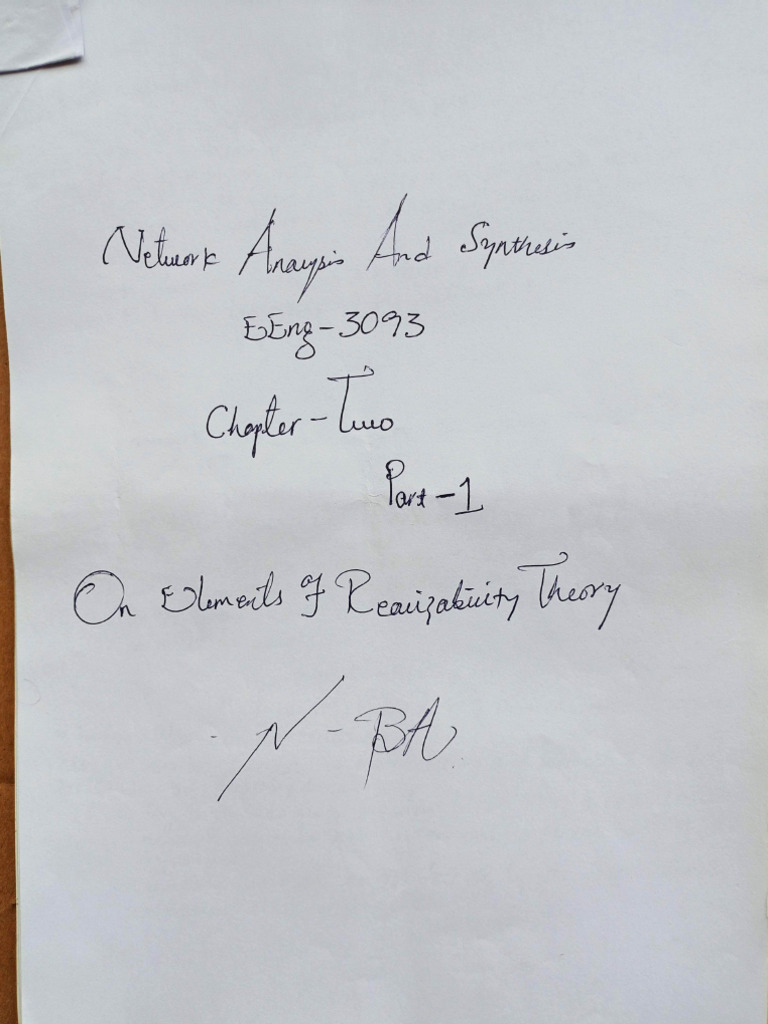 Network Analysis And Synthesis
EEng-3093
Chapter-Two
Part-1
On Elements Of Realizability Theory
N-BA